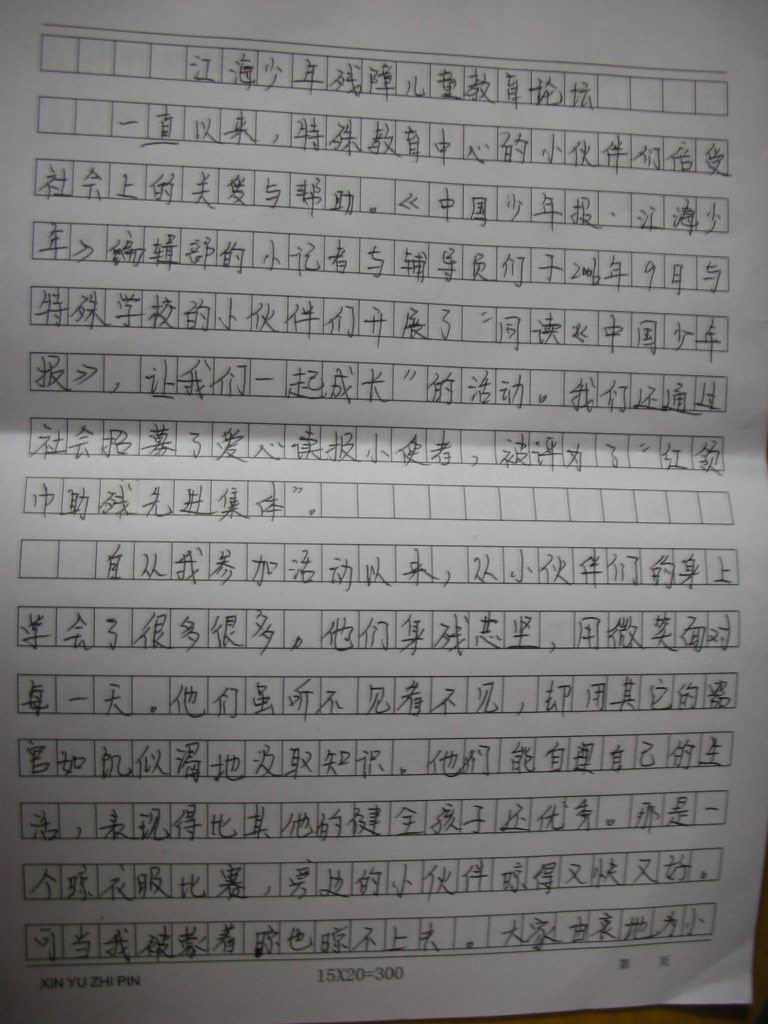 江海少年残障儿童教育论坛
一直以来，特殊教育中心的小伙伴们倍受
社会上的关爱与帮助。《中国少年报·江海少
年》编辑部的小记者与辅导员们于2006年9月与
特殊学校的小伙伴们开展了“同读《中国少年
报》，让我们一起成长”的活动。我们还通过
社会招募了爱心读报小使者，被评为了“红领
巾助残先进集体”。
自从我参加活动以来，从小伙伴们的身上
学会了很多很多。他们身残志坚，用微笑面对
每一天。他们虽听不见看不见，却用其它的器
官如饥似渴地汲取知识。他们能自理自己的生
活，表现得比其他的健全孩子还优秀。那是一
个晾衣服比赛，旁边的小伙伴晾得又快又好。
可当我被蒙着晾也晾不上去。大家由衷地为小
XIN YU ZHI PIN
15X20=300
第 页